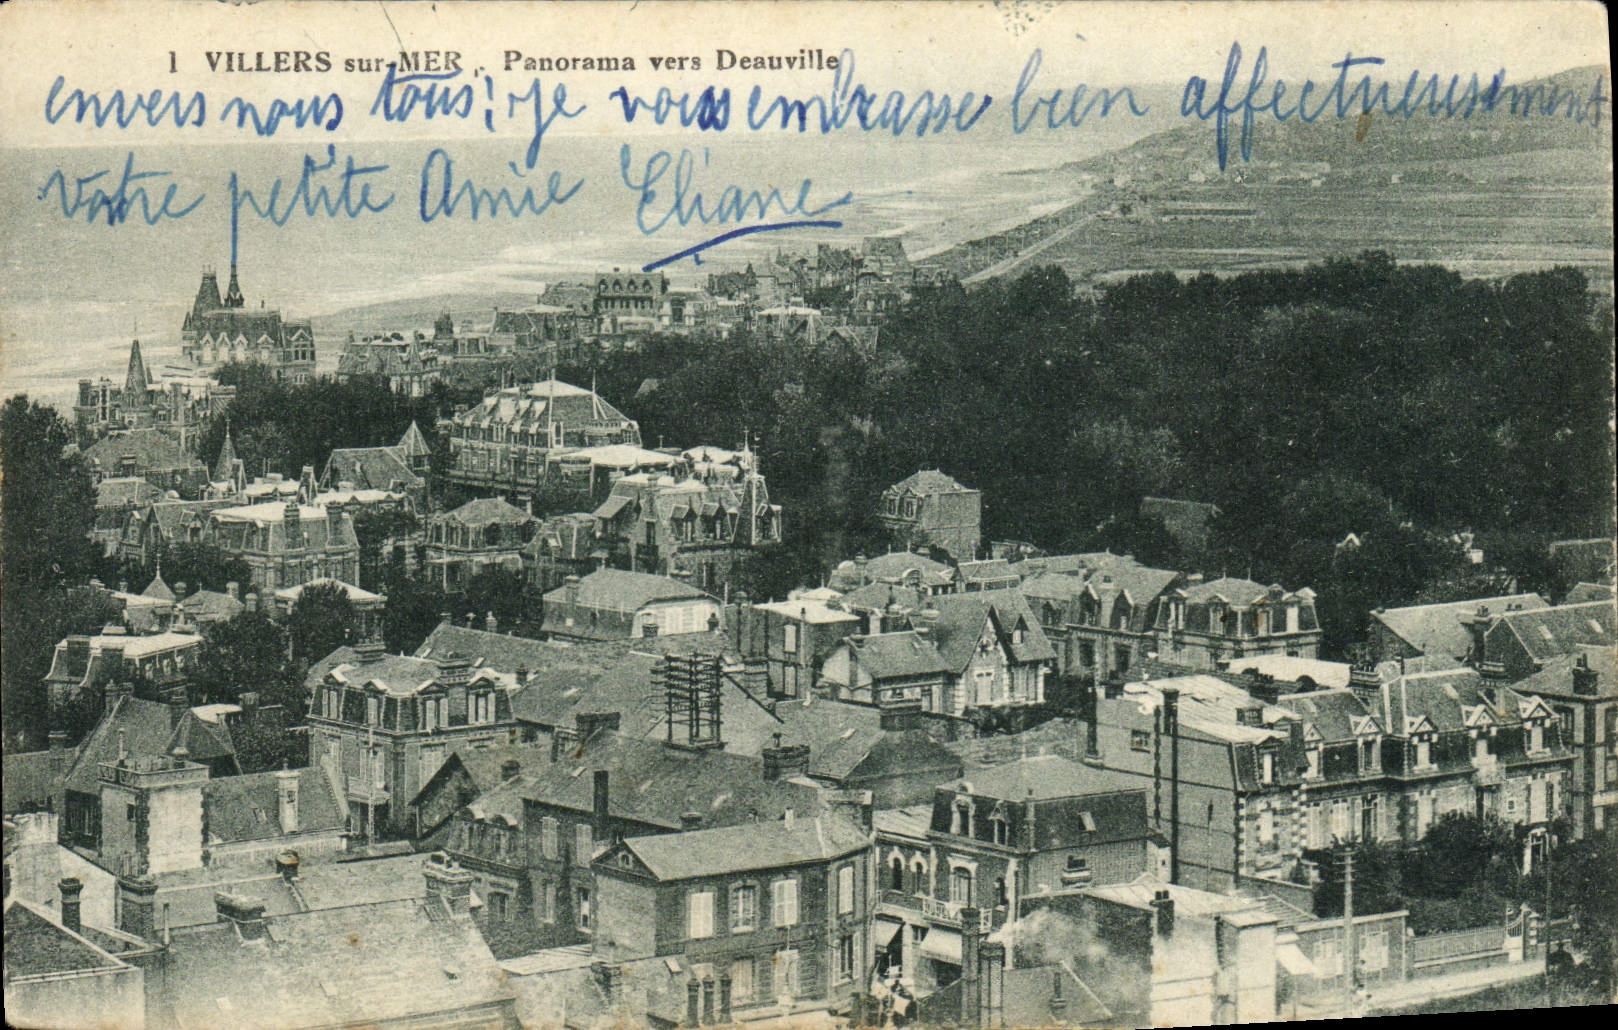 1 VILLERS sur-MER. Panorama vers Deauville
envers nous tous! je vous embrasse bien affectueusement
votre petite Amie Eliane